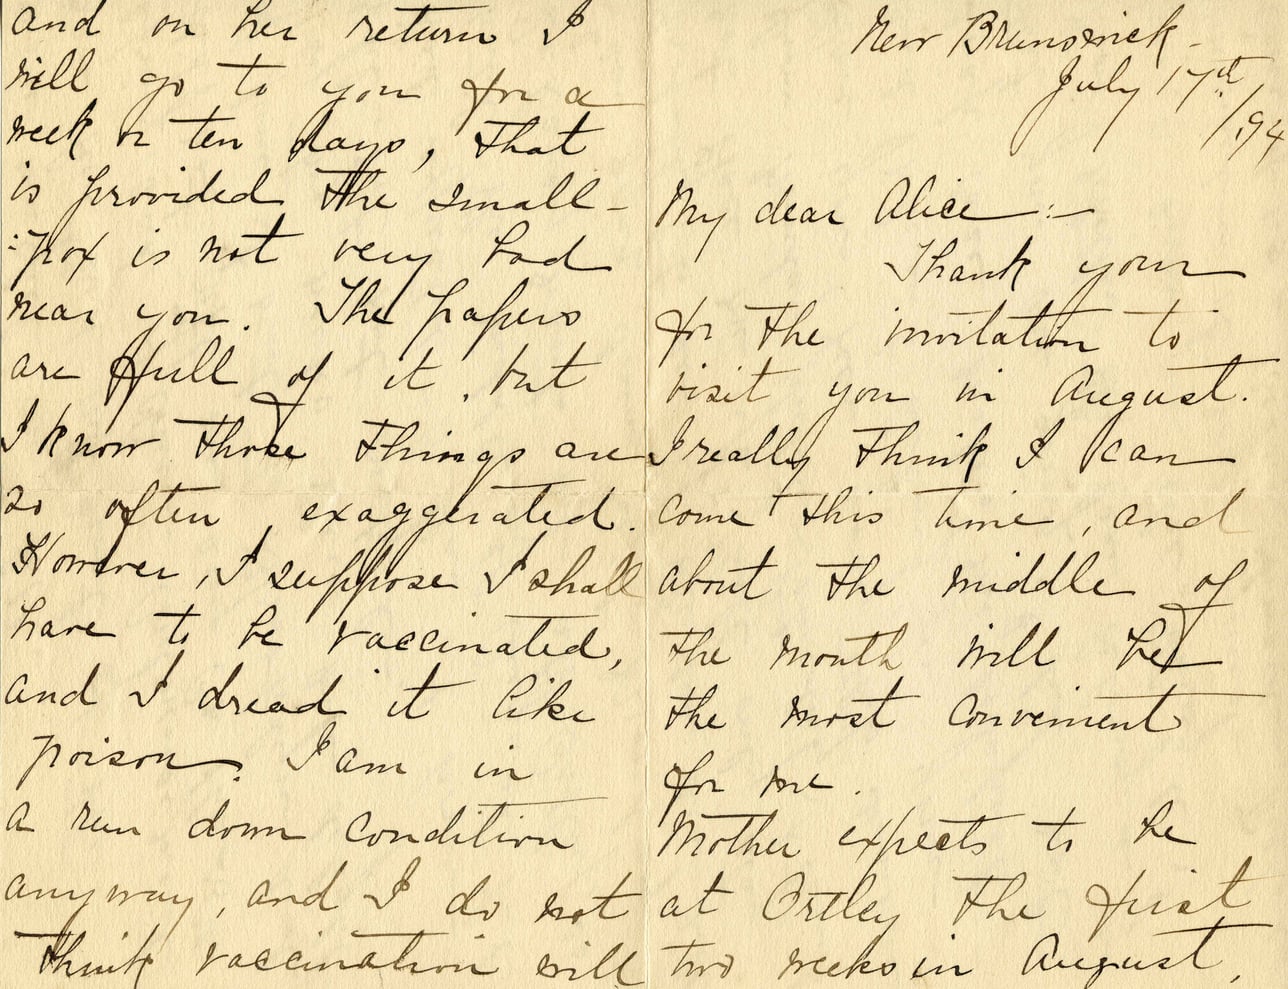 New Brunswick -
July 17th
/94
My dear Alice :-
Thank your
for the invitation to
visit you in August.
I really think I can
come this time, and
about the middle of
the month will be
the most convenient
for me.
Mother expects to be
at Ortley the first
two weeks in August,
and on her return I
will go to you for a
week or ten days, that
is provided the small-
:pox is not very bad
near you. The papers
are full of it, but
I know those things are
so often exaggerated.
However, I suppose I shall
have to be vaccinated,
and I dread it like
poison. I am in
a run down condition
anyway, and I do not
think vaccination will